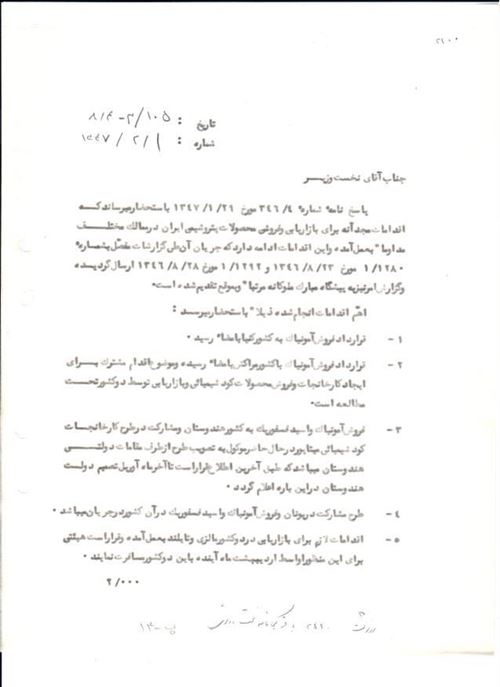 ۲۱۰۰
تاریخ : ۸۱۴-۳/۱۰۵
شماره : ۱۳۴۷/۲/۱
جناب آقای نخست وزیر
پاسخ نامه شماره ۳۴۶/۴ مورخ ۱۳۴۷/۱/۲۹ باستحضار میرساند که
اقدامات مجدانه برای بازاریابی و فروش محصولات پتروشیمی ایران در ممالک مختلف
مداوما" بعمل آمده و این اقدامات ادامه دارد که جریان آن طی گزارشات مفصل بشماره
۱/۱۲۸۰ مورخ ۱۳۴۶/۸/۲۳ و ۱/۱۲۹۲ مورخ ۱۳۴۶/۸/۲۸ ارسال گردیده
و گزارش امر نیز به پیشگاه مبارک ملوکانه مرتبا" و بموقع تقدیم شده است.
اهم اقدامات انجام شده ذیلا" باستحضار میرسد :
۱ - قرارداد فروش آمونیاک به کشور کنیا بامضاء رسید .
۲ - قرارداد فروش آمونیاک با کشور مراکش بامضاء رسیده و موضوع اقدام مشترک برای
ایجاد کارخانجات و فروش محصولات کود شیمیائی و بازاریابی توسط دو کشور تحت
مطالعه است.
۳ - فروش آمونیاک و اسید فسفوریک به کشور هندوستان و مشارکت در طرح کارخانجات
کود شیمیائی میتاپور در حال حاضر موکول به تصویب طرح از طرف مقامات دولتی
هندوستان میباشد که طبق آخرین اطلاع قرار است تا آخر ماه آوریل تصمیم دولت
هندوستان در این باره اعلام گردد .
۴ - طرح مشارکت در یونان و فروش آمونیاک و اسید فسفوریک در آن کشور در جریان میباشد .
۵ - اقدامات لازم برای بازاریابی در دو کشور مالزی و تایلند بعمل آمده و قرار است هیئتی
برای این منظور اواسط اردیبهشت ماه آینده باین دو کشور مسافرت نمایند .
۲/۰۰۰